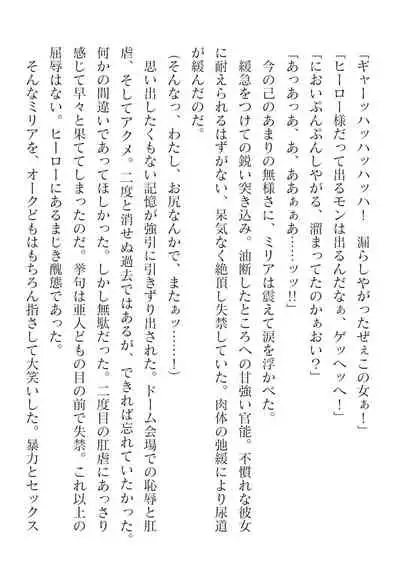 「ギャーッハッハッハッハ！　漏らしやがったぜぇこの女ぁ！」
「ヒーロー様だって出るモンは出るんだなぁ、ゲッヘッヘ！」
「においぷんぷんしやがる、溜まってたのかぁおい？」
「あっあっあ、あ、ああぁぁあ……ッッ!!」
　今の己のあまりの無様さに、ミリアは震えて涙を浮かべた。
　緩急をつけての鋭い突き込み。油断したところへの甘強い官能。不慣れな彼女
に耐えられるはずがない、呆気なく絶頂し失禁していた。肉体の弛緩により尿道
が緩んだのだ。
（そんなっ、わたし、お尻なんかで、またぁッ……！）
　思い出したくもない記憶が強引に引きずり出された。ドーム会場での恥辱と肛
虐、そしてアクメ。二度と消せぬ過去ではあるが、できれば忘れていたかった。
何かの間違いであってほしかった。しかし無駄だった。二度目の肛虐にあっさり
感じて早々と果ててしまったのだ。挙句は亜人どもの目の前で失禁。これ以上の
屈辱はない。ヒーローにあるまじき醜態であった。
　そんなミリアを、オークどもはもちろん指さして大笑いした。暴力とセックス